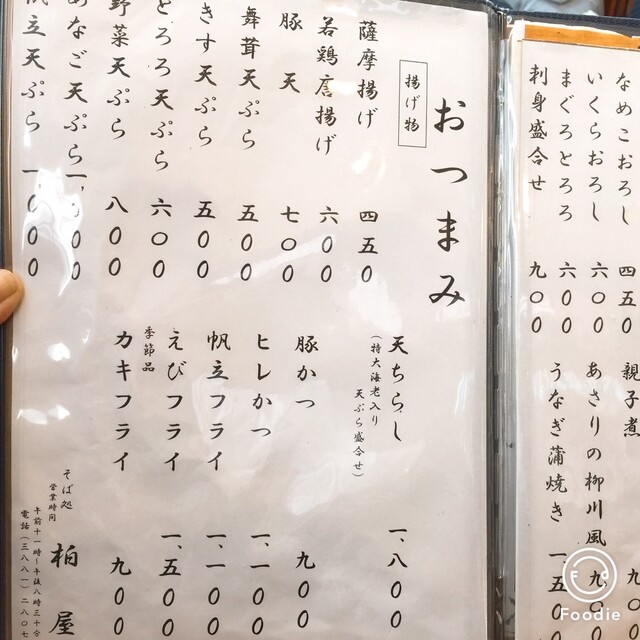 なめこおろし 四五〇
いくらおろし 六〇〇
まぐろとろろ 六〇〇
刺身盛合せ 九〇〇
親子煮 九〇
あさりの柳川風 九〇
うなぎ蒲焼き 一五〇
おつまみ
揚げ物
薩摩揚げ 四五〇
若鶏唐揚げ 六〇〇
豚天 七〇〇
舞茸天ぷら 五〇〇
きす天ぷら 五〇〇
とろろ天ぷら 六〇〇
野菜天ぷら 八〇〇
あなご天ぷら
帆立天ぷら 一、〇〇〇
天ちらし 一、八〇〇
(特大海老入り
天ぷら盛合せ)
豚かつ 九〇〇
ヒレかつ 一、一〇〇
帆立フライ 一、一〇〇
えびフライ 一、五〇〇
季節品
カキフライ 九〇〇
そば処 柏屋
営業時間
午前十一時〜午後八時三十分
電話(三八八一)二八〇七
Foodie